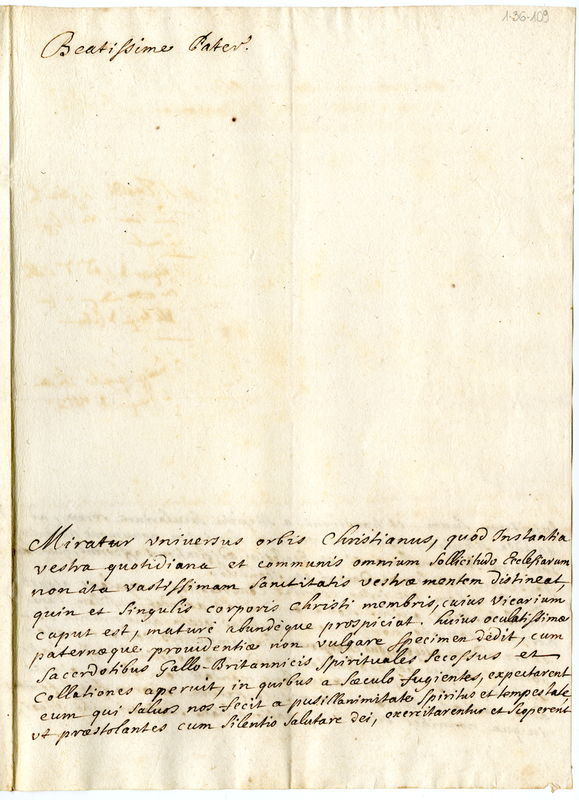 1-36-109
Beatissime Pater.
Miratur vniversus orbis Christianus, quod Instantia
vestra quotidiana et communis omnium sollicitudo Ecclesiarum
non ita vastissimam sanctitatis vestræ mentem distineat
quin et singulis corporis Christi membris, cuius vicarium
caput est, mature abundéque prospiciat. huius oculatissimæ
paternæque providentiæ non vulgare specimen dedit, cum
sacerdotibus Gallo-Britannicis spirituales secessus et
Collationes aperuit, in quibus a sæculo fugientes, expectarent
eum qui saluos nos fecit a pusillanimitate spiritus et tempestate
vt præstolantes cum silentio salutare dei, exercitarentur et scoperent